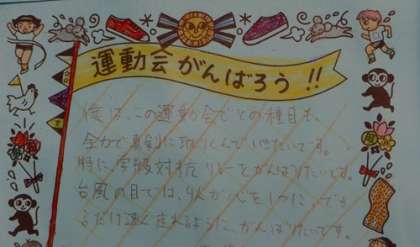 運動会がんばろう!!
僕は、この運動会でどの種目も、
全力で真剣に取りくんでいきたいです。
特に、学級対抗リレーとがんばりたいです。
台風の目では、4人が心を1つに、でき
るだけ速く走れるように、がんばりたいです。